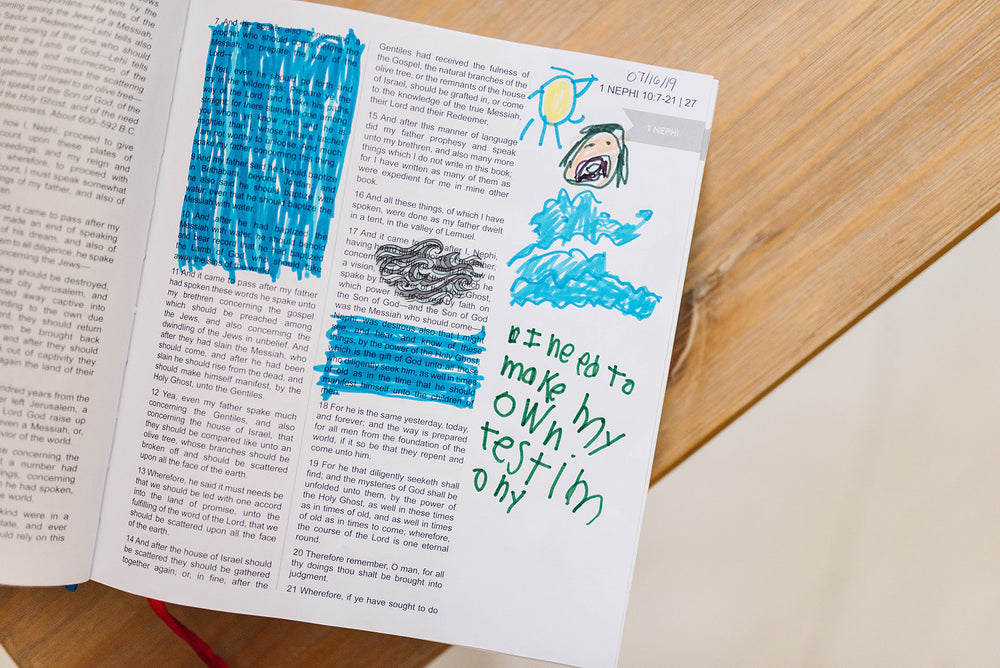 coming of a Messiah,
Savior, a Redeemer—Lehi tells of
the coming of the one who should
the Lamb of God—Lehi tells also
the death and resurrection of the
He compares the scattering
gathering of Israel to an olive
speaks of the Son of God, of the
the Holy Ghost, and of the need
About 600–592 B.C.
now I, Nephi, proceed to give
account upon these plates of
my reign and
wherefore, to proceed with
account, I must speak somewhat
things of my father, and also of
it came to pass after my
made an end of speaking
his dream, and also of
them to all diligence, he spake
concerning the Jews—
they should be destroyed,
great city Jerusalem, and
carried away captive into
according to the own due
Lord, they should return
even be brought back
and after they should
back out of captivity they
again the land of their
hundred years from the
father left Jerusalem, a
Lord God raise up
even a Messiah, or,
Savior of the world.
concerning the
a number had
things, concerning
he had spoken,
world.
mankind were in a
state, and ever
should rely on this
7 And he spake also concerning
prophet who should come before the
Messiah, to prepare the way of the
Lord—
8 Yea, even he should go forth and
cry in the wilderness: Prepare ye the
way of the Lord, and make his paths
straight; for there standeth one among
you whom ye know not; and he is
mightier than I, whose shoe's latchet
I am not worthy to unloose. And much
spake my father concerning this thing.
9 And my father said he should baptize
in Bethabara, beyond Jordan; and
he also said he should baptize with
water; even that he should baptize the
Messiah with water.
10 And after he had baptized the
Messiah with water, he should behold
and bear record that he had baptized
the Lamb of God, who should take
away the sins of the world.
11 And it came to pass after my father
had spoken these words he spake unto
my brethren concerning the gospel
which should be preached among
the Jews, and also concerning the
dwindling of the Jews in unbelief. And
after they had slain the Messiah, who
should come, and after he had been
slain he should rise from the dead, and
should make himself manifest, by the
Holy Ghost, unto the Gentiles.
12 Yea, even my father spake much
concerning the Gentiles, and also
concerning the house of Israel, that
they should be compared like unto an
olive tree, whose branches should be
broken off and should be scattered
upon all the face of the earth.
13 Wherefore, he said it must needs be
that we should be led with one accord
into the land of promise, unto the
fulfilling of the word of the Lord, that we
should be scattered upon all the face
of the earth.
14 And after the house of Israel should
be scattered they should be gathered
together again; or, in fine, after the
Gentiles had received the fulness of
the Gospel, the natural branches of the
olive tree, or the remnants of the house
of Israel, should be grafted in, or come
to the knowledge of the true Messiah,
their Lord and their Redeemer.
15 And after this manner of language
did my father prophesy and speak
unto my brethren, and also many more
things which I do not write in this book;
for I have written as many of them as
were expedient for me in mine other
book.
16 And all these things, of which I have
spoken, were done as my father dwelt
in a tent, in the valley of Lemuel.
17 And it came after I, Nephi,
having heard father,
concerning saw in
a vision,
spake by Ghost,
which power he by faith on
the Son of God—and the Son of God
was the Messiah who should come—I,
Nephi, was desirous also that I might
see, and hear, and know of these
things, by the power of the Holy Ghost,
which is the gift of God unto all those
who diligently seek him, as well in times
of old as in the time that he should
manifest himself unto the children of
men.
18 For he is the same yesterday, today,
and forever; and the way is prepared
for all men from the foundation of the
world, if it so be that they repent and
come unto him.
19 For he that diligently seeketh shall
find; and the mysteries of God shall be
unfolded unto them, by the power of
the Holy Ghost, as well in these times
as in times of old, and as well in times
of old as in times to come; wherefore,
the course of the Lord is one eternal
round.
20 Therefore remember, O man, for all
thy doings thou shalt be brought into
judgment.
21 Wherefore, if ye have sought to do
07/16/19
1 NEPHI 10:7-21 | 27
1 NEPHI
I need to
make my
own
testim
ony